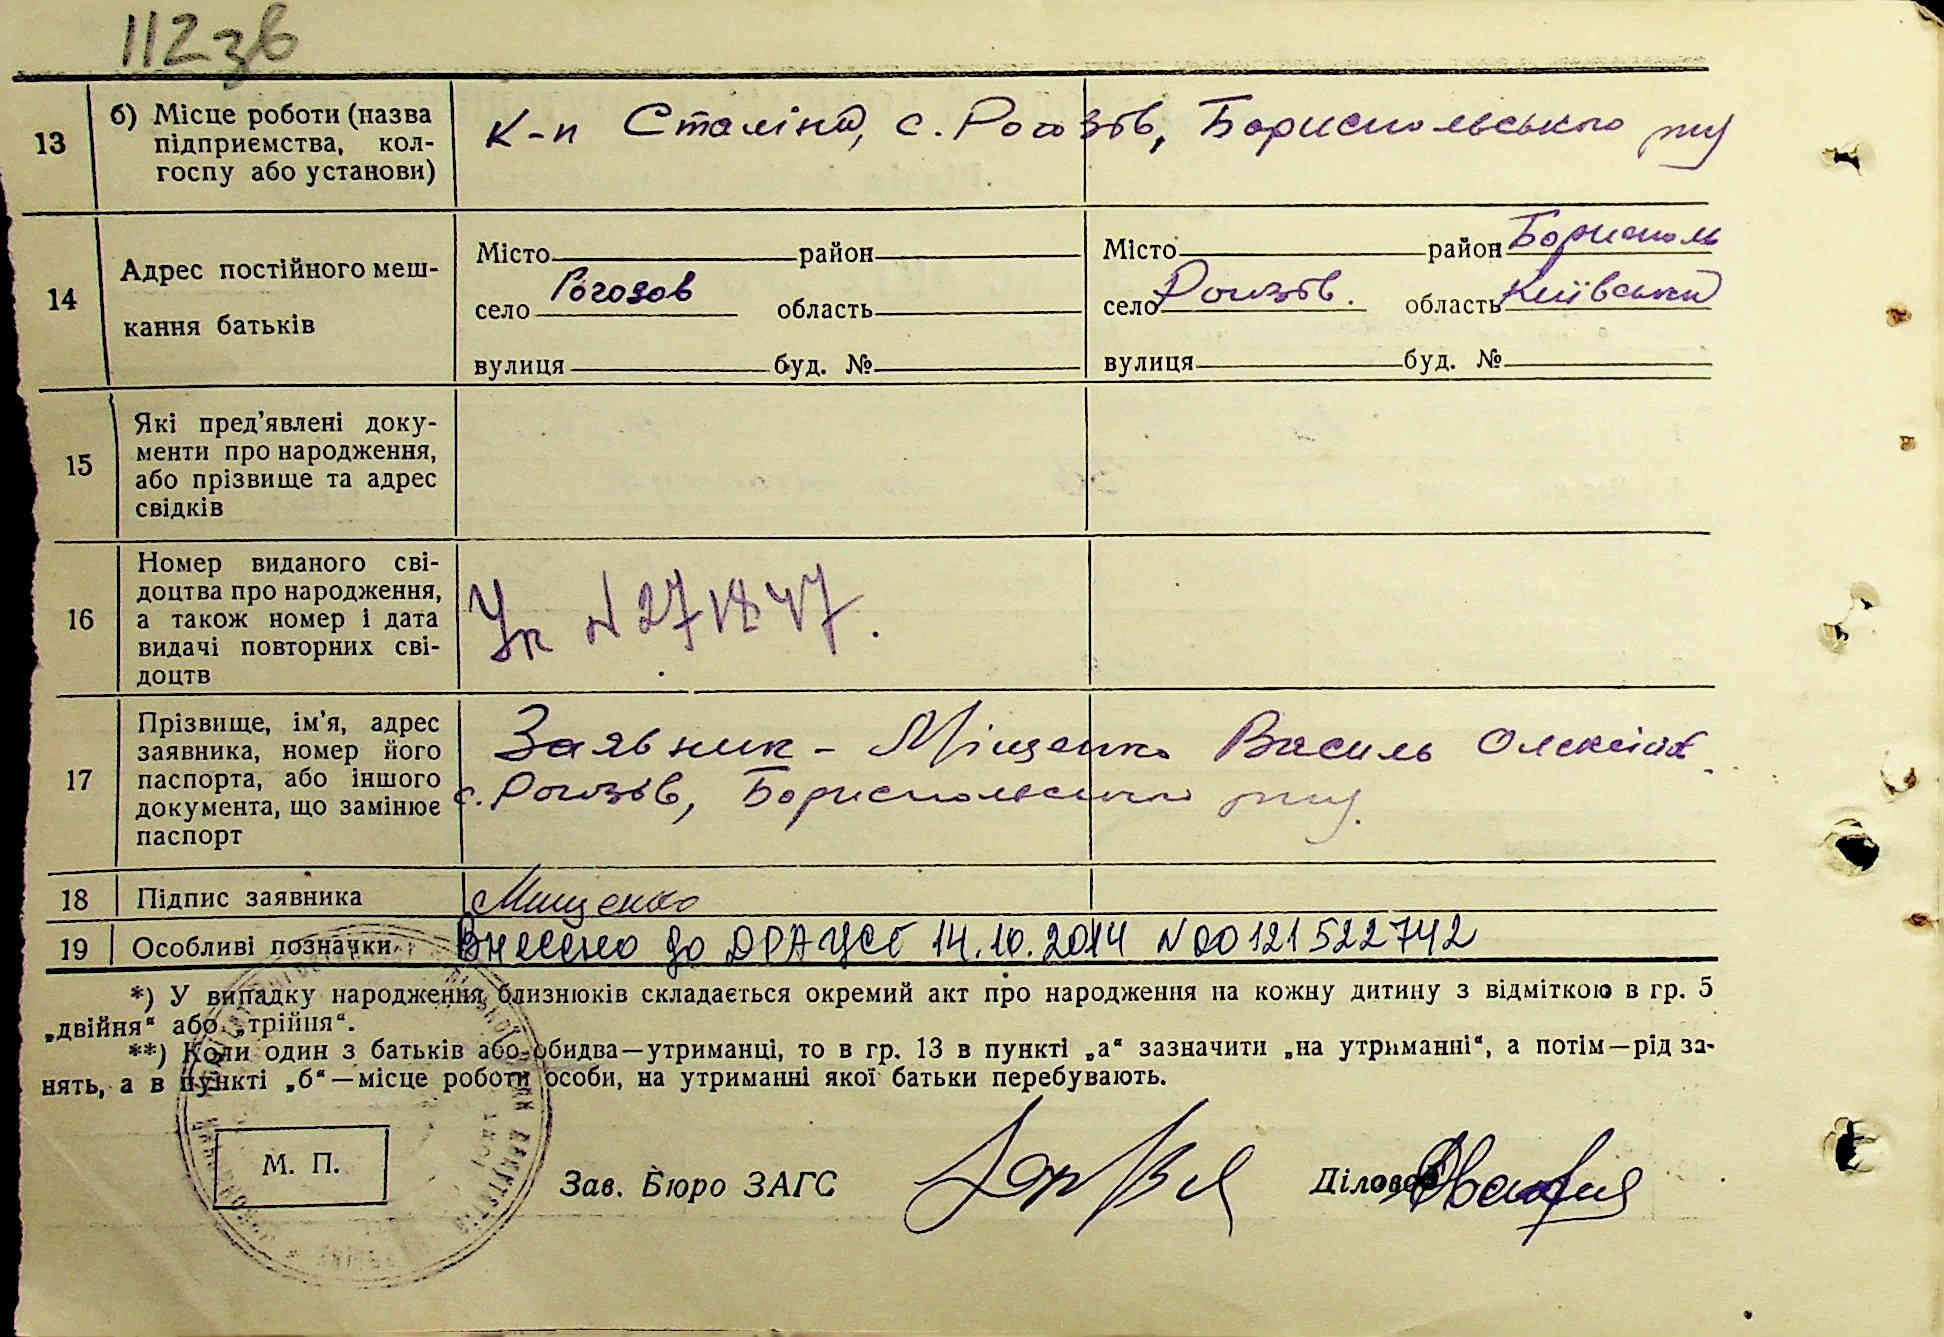 112зв
13 б) Місце роботи (назва
підприємства, кол-
госпу або установи)
к-п Сталіна, с. Рогозів, Бориспольського р-ну
14 Адрес постійного меш-
кання батьків
Місто район
село Рогозов область
вулиця буд. №
Місто район Борисполь
село Рогозів. область Київська
вулиця буд. №
15 Які пред'явлені доку-
менти про народження,
або прізвище та адрес
свідків
16 Номер виданого сві-
доцтва про народження,
а також номер і дата
видачі повторних сві-
доцтв
Ук N 271847.
17 Прізвище, ім'я, адрес
заявника, номер його
паспорта, або іншого
документа, що замінює
паспорт
Заявник - Міщенко Василь Олексійов.
с. Рогозів, Бориспольського р-ну.
18 Підпис заявника Мищенко
19 Особливі позначки Внесено до ДРАЦСГ 14.10.2014 N00121522742
*) У випадку народження близнюків складається окремий акт про народження на кожну дитину з відміткою в гр. 5
„двійня“ або „трійня“.
**) Коли один з батьків або обидва—утриманці, то в гр. 13 в пункті „а“ зазначити „на утриманні“, а потім—рід за-
нять, а в пункті „б“—місце роботи особи, на утриманні якої батьки перебувають.
М. П.
Зав. Бюро ЗАГС Діловод